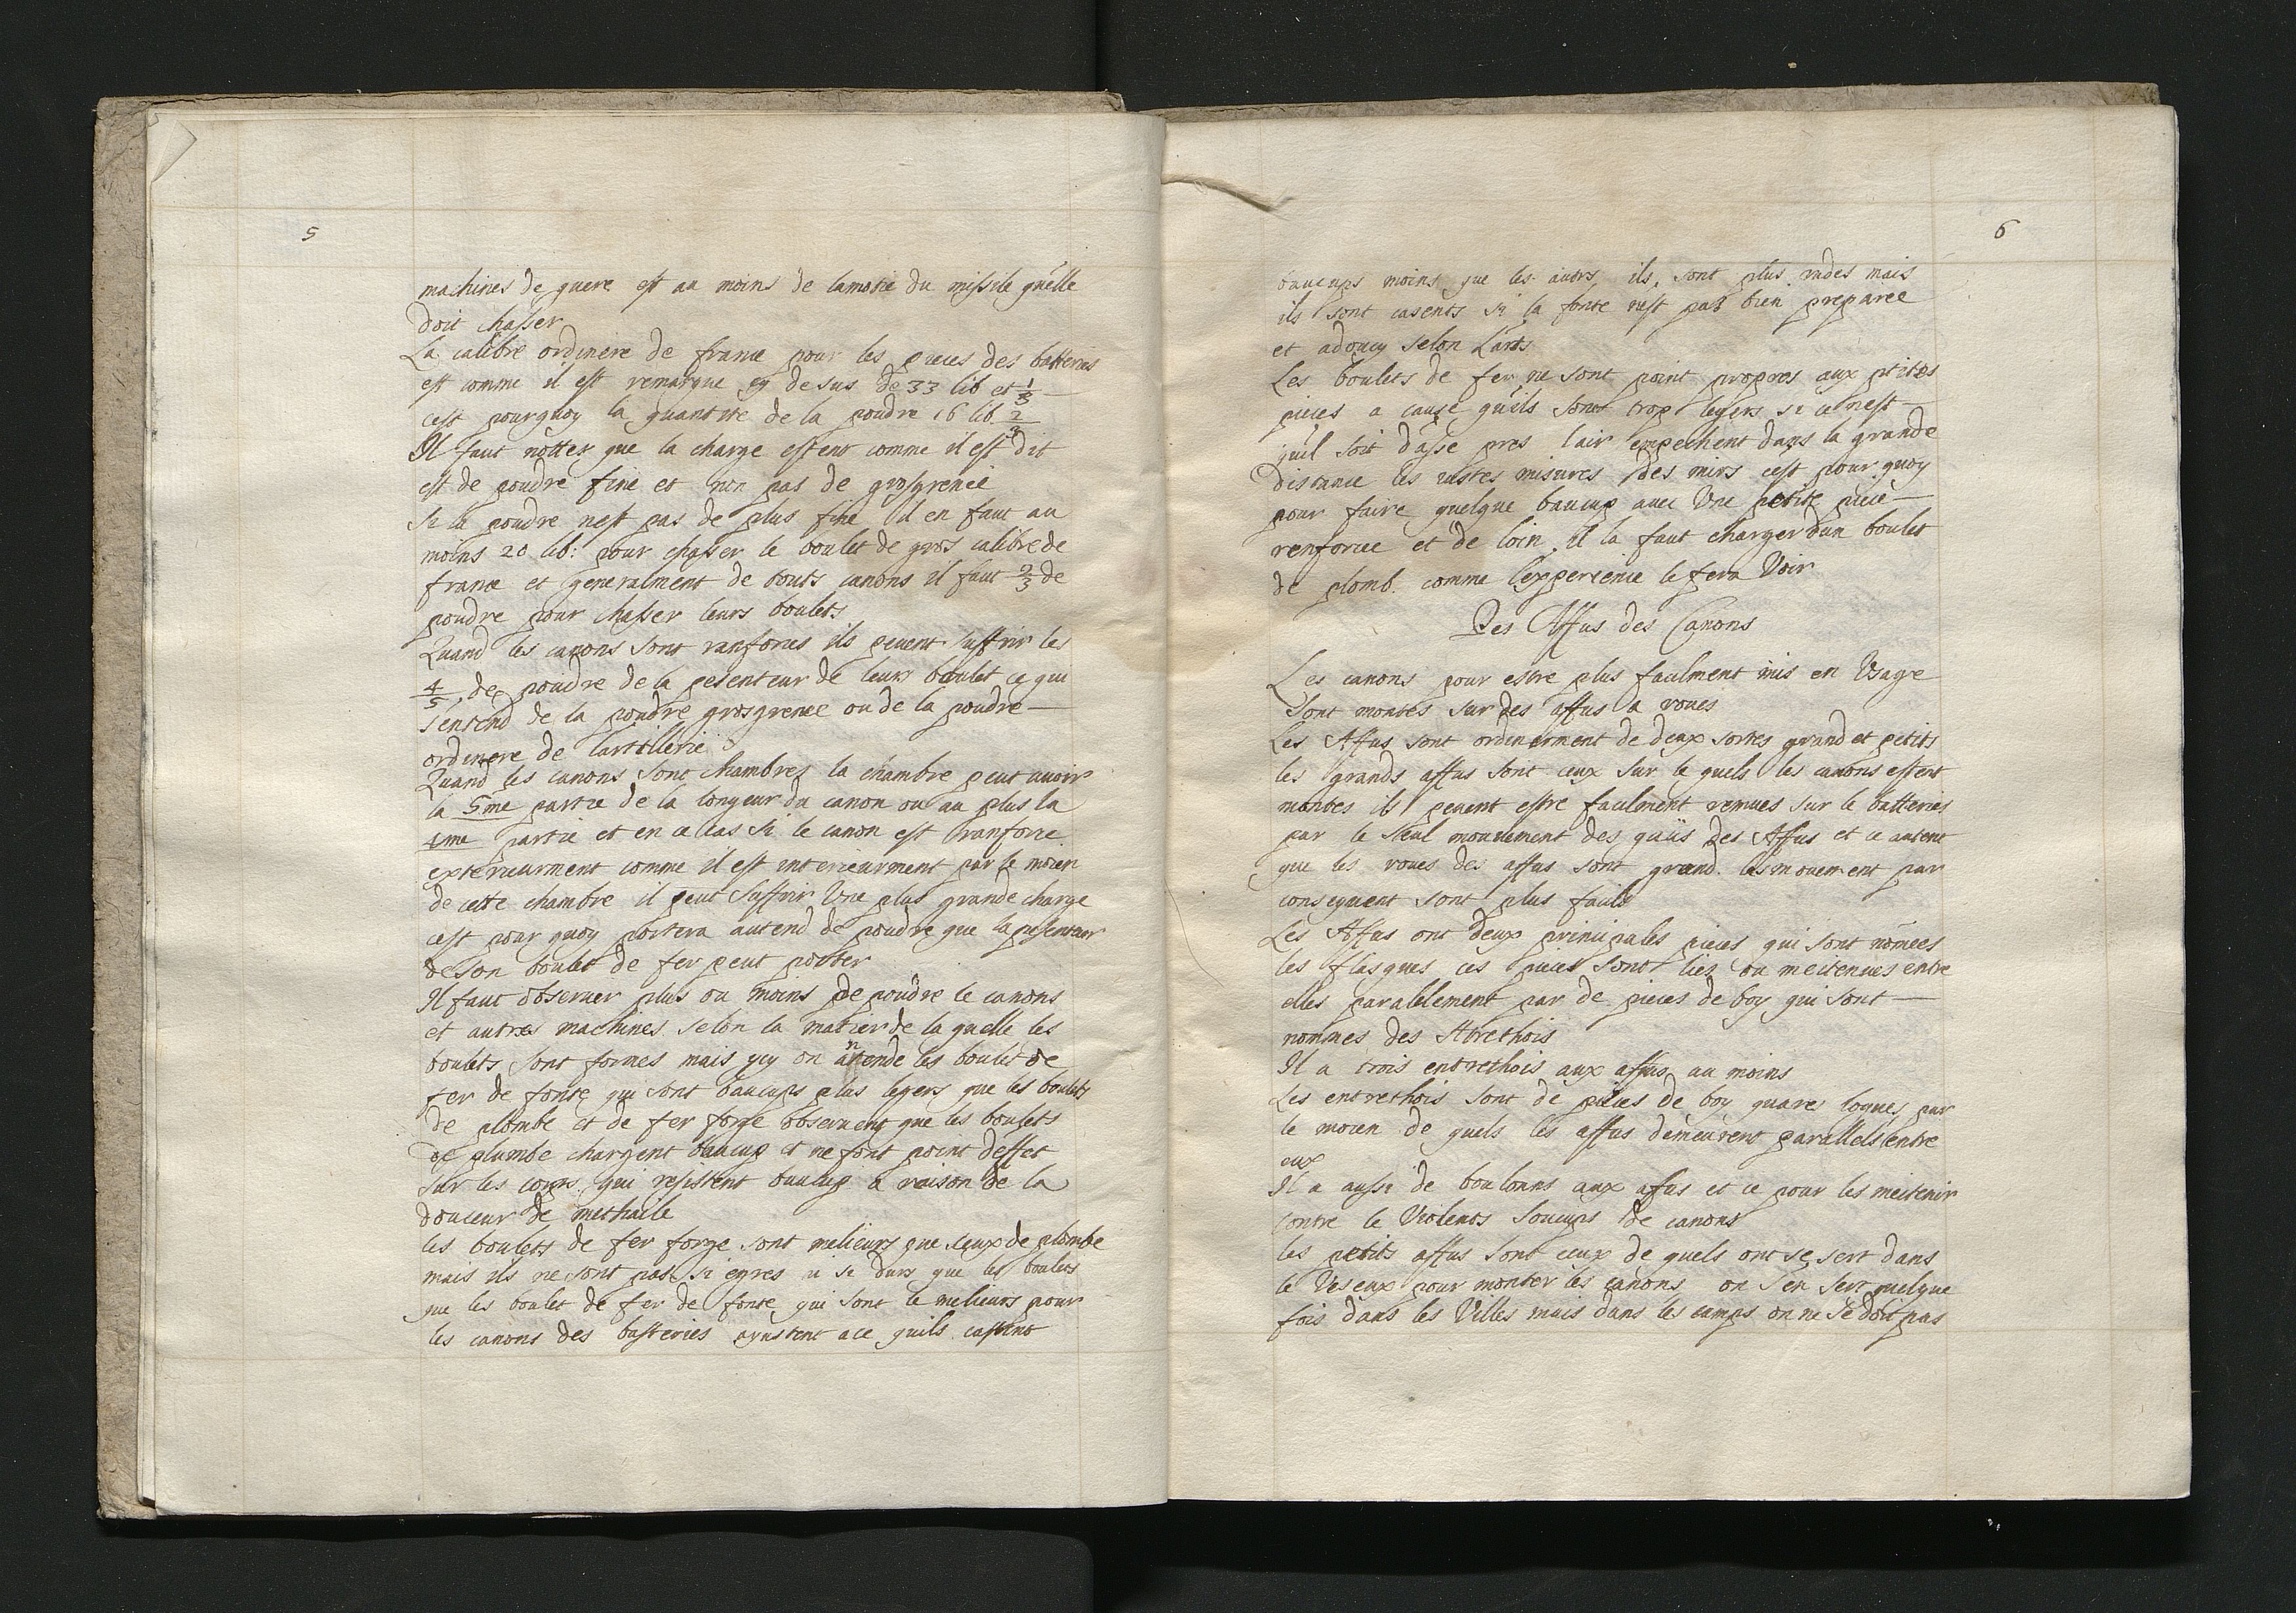 5
machines de guere est au moins de lamotie du missile quélle
doit chasser
La calibre ordinere de france pour les pieces des batteries
est comme il est remarque cy desus de 33 lib et 1/3
cest pourquoy la quantite de la poudre 16 lib 2/3
Il faut nötter que la charge estent comme il est dit
est de poudre fine et non pas de grosgrenee
si la poudre nest pas de plus fine il en faut au
moins 20 lib: pour chasser le boulet de gros calibre de
france et generalment de touts canons il faut 2/3 de
poudre pour chasser leurs boulets
Quand les canons sont ranforces ils peuent suffrir les
4/5 de poudre de la pesenteur de leurs boulet ce qui
s'entend de la poudre grosgrenee ou de la poudre
ordinere de lartillerie
Quand les canons sont chambrez la chambre peut auoir
la 5me partie de la longeur du canon ou au plus la
4me partie et en ce cas si le canon est ranforce
exterieurment comme il est interieurment par le moien
de cette chambre il peut suffrir Une plus grande charge
cest pour quoy portera autend de poudre que la pesenteur
de son boulet de fer peut porter
Il faut observer plus ou moins de poudre le canons
et autres machines selon la matier de la quelle les
boulets sont formes mais ycy on antende les boulet de
fer de fonte qui sont baucups plus legers que les boulets
de plombe et de fer forge observent que les boulets
de plumbe chargent baucup et ne font point deffet
sur les corps qui resistent baucup a raison de la
douceur de methaile
les boulets de fer forge sont melieurs que ceux de plombe
mais ils ne sont pas si eyres ni si durs que les boulets
que les boulet de fer de fonte qui sont le melieurs pour
les canons des batteries aiustent ace quils castent
6
baucups moins que les autrs ils sont plus rudes mais
ils sont casents si la fonte nest pas bien preparee
et adoucy selon Larts
Les boulets de fer ne sont point propres aux ptites
pieces a cause quils sont trop legers si ce nest
quil soit dasse pres lair empechent dans la grande
distance les iustes misures des mirs cest pour quoy
pour faire quelque baucup auec Une petite piece
renforcee et de loin il la faut charger dun boulet
de plomb. comme lexperience le fera Voir
Des Affus des Canons
Les canons pour estre plus facilment mis en Usage
sont montes sur des affus a roues
Les Affus sont ordinerment de deux sortes grand et petits
les grands affus sont ceux sur le quels les canons estent
montes ils peuent estre facilment remues sur le batteries
par le seul mouvement des Affus et ce autent
que les roues des affus sont grand. les mouement par
consequent sont plus facils
Les Affus ont deux principales pieces qui sont nömees
les flasques ces pieces sont liez ou meitenues entre
elles parallelement par de pieces de boy qui sont
nommes des Atrethois
Il a trois entrethois aux affus au moins
Les entrethois sont de pieces de boy quares logues par
le moien de quels les affus demeurent parallels entre
eux
Il a aussi de boulonns aux afus et ce pour les meitenir
contre le Violents soucups de canons
les petits affus sont ceux de quels ont se sert dans
le Veseaux pour monter les canons on s'en sert quelque
fois dans les Villes mais dans les camps on ne se doit pas